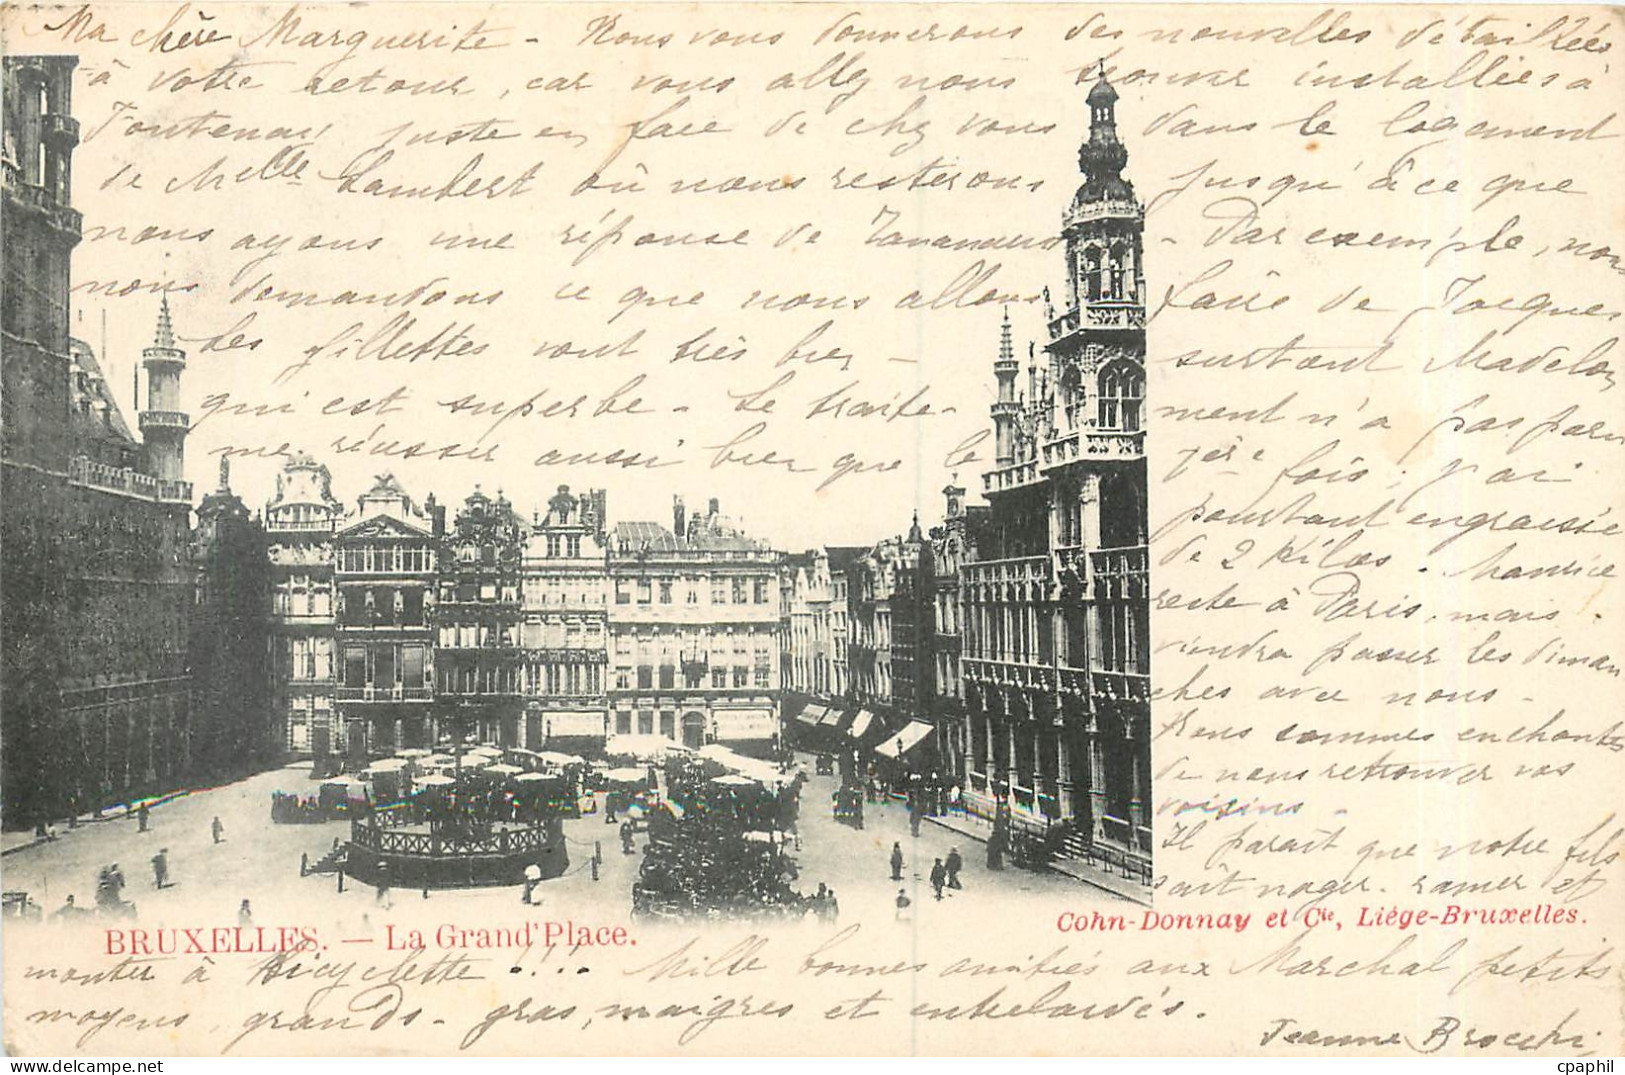 Ma chère Marguerite - Nous vous donnerons des nouvelles détaillées
à votre retour, car vous allez nous trouver installées à
Fontenay juste en face de chez vous dans le logement
de Melle Lambert où nous resterons jusqu'à ce que
nous ayons une réponse de - Par exemple, nous
nous demandons ce que nous allons faire de Jacques
Les fillettes vont très bien - surtout Madelon
qui est superbe - Le traite-
ment n'a pas paru
me réussir aussi bien que le
1ère fois; j'ai
pourtant engraissé
de 2 Kilos. Maurice
reste à Paris, mais
viendra passer les diman
ches avec nous -
Nous sommes enchantés
de nous retrouver vos
voisins -
Il parait que notre fils
sait nager. ramer et
BRUXELLES. — La Grand'Place.
Cohn-Donnay et Cie, Liége-Bruxelles.
monter à bicyclette !!! Mille bonnes amitiés aux Marchal petits
moyens, grands - gras, maigres et entrelardés.
Jeanne Brocchi
cpaphil